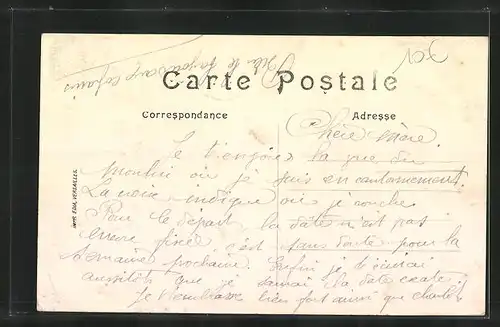 Carte Postale
Correspondance
Adresse
Chère Mère.
Je t'envoie la vue du
moulin où je suis en cantonnement.
La croix indique où je couche
Pour le départ la date n'est pas
encore fixée c'est sans doute pour la
semaine prochaine. Enfin je t'écrirai
aussitôt que je saurai la date exacte.
Je t'embrasse bien fort ainsi que Charlot
VERSAILLES